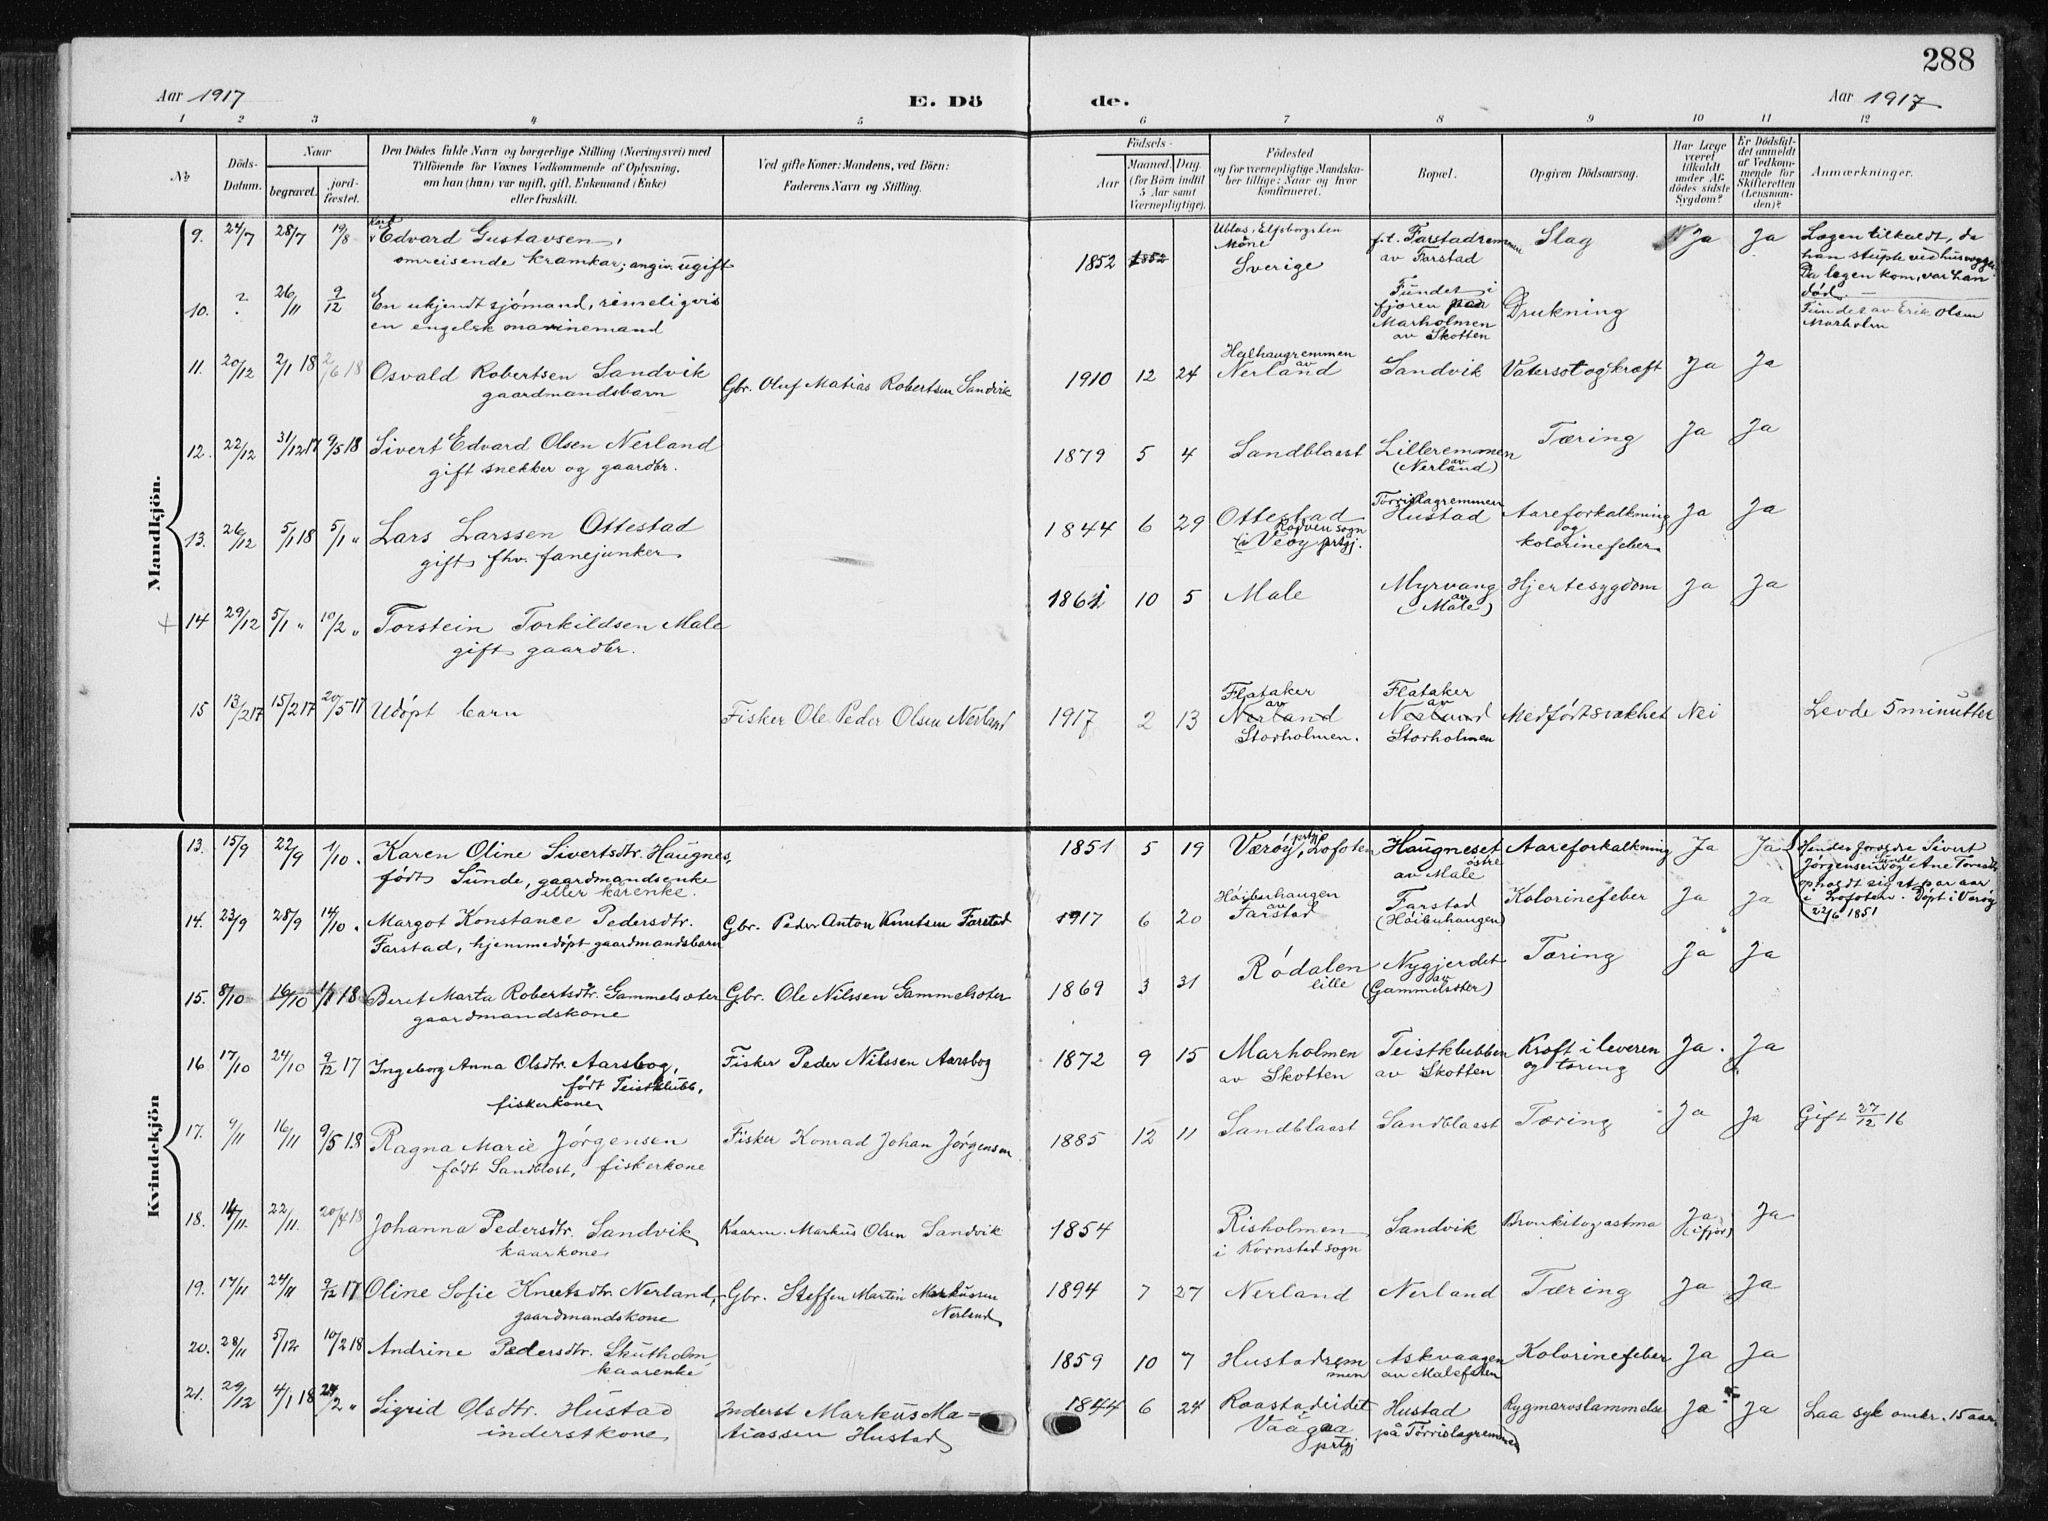 288
Aar 1917 E. Dö de. Aar 1917
1 2 3 4 5 6 7 8 9 10 11 12
№
Döds-Datum.
Naar
begravet.
jord-fæstet.
Den Dödes fulde Navn og borgerlige Stilling (Næringsvei) med
Tilföiende for Voxnes Vedkommende af Oplysning,
om han (hun) var ugift, gift, Enkemand (Enke)
eller fraskilt.
Ved gifte Koner: Mandens, ved Börn:
Faderens Navn og Stilling.
Födsels-
Aar
Maaned. Dag.
(for Börn indtil
5 Aar samt
Værnepligtige).
Födested
og for værnepligtige Mandska-
ber tillige: Naar og hvor
konfirmeret.
Bopæl.
Opgiven Dödsaarsag.
Har Læge
været
tilkaldt
under Af-
dödes sidste
Sygdom?
Er Dödsfal-
det anmeldt
af Vedkom-
mende for
Skifteretten
(Lensman-
den)?
Anmærkninger.
Mandkjön.
9. 24/7 28/7 19/8 Karl Edvard Gustavsen, omreisende kramkar; angiv. ugift 1852 1852 Elfsborgslen Möne Sverige f.t. Farstadremmen av Farstad Slag Ja Ja Lægen tilkaldt, da han stupte ved husvegge. Da lægen kom, var han død.
10. ? 26/11 9/12 En ukjendt sjömand, rimeligvis en engelsk marinemand Fundet i fjæren paa Marholmen av Skotten Drukning Fundet av Erik Olsen Marholm
11. 20/12 2/1 18 2/6 18 Osvald Robertsen Sandvik gaardmandsbarn Gbr. Oluf Matias Robertsen Sandvik 1910 12 24 Helhaugremmen av Nerland Sandvik Vatersot og kræft Ja Ja
12. 22/12 31/12 17 9/5 18 Sivert Edvard Olsen Nerland gift snekker og gaardbr. 1879 5 4 Sandblaast Lilleremmen av (Nerland) Tæring Ja Ja
13. 26/12 5/1 18 5/1 " Lars Larssen Ottestad gift, fhv. fanejunker 1844 6 29 Ottestad Rödven sogn i Veöy prtgj. Törrislagremmen Hustad Aareforkalkning og kolorinefeber Ja Ja
+ 14 29/12 5/1 " 10/2 " Torstein Torkildsen Male gift gaardbr. 1861 10 5 Male Myrvang av (Male) Hjertesygdom Ja Ja
15 13/2 17 15/2 17 20/5 17 Udöpt barn Fisker Ole Peder Olsen Nerland 1917 2 13 Flataker av Nerland Storholmen. Flataker av Nerland Storholmen Medfödt svakhet Nei Levde 5 minutter
Kvindekjön
13. 15/9 22/9 1/10. Karen Oline Sivertsdtr. Haugnes, født Sunde, gaardmandsenke eller kårenke. 1851 5 19 Værøy prtgj, Lofoten Haugneset östre av Male Aareforkalkning Ja Ja Hendes forældre Sivert Jørgensen Sunde og Ane opholdt sig et par aar i Lofoten. Döpt i Værøy 22/6 1851
14. 23/9 28/9 14/10. Margot Konstance Pedersdtr. Farstad, hjemmedöpt gaardmandsbarn Gbr. Peder Anton Knutsen Farstad 1917 6 20 Höibuhaugen av Farstad Farstad (Höibuhaugen) Kolorinefeber Ja Ja
15. 8/10 16/10 1/1 18 Beret Marta Robertsdtr. Gammelsæter gaardmandskone Gbr. Ole Nilssen Gammelsæter 1869 3 31 Rödalen lille Nygjerdet av (Gammelsæter) Tæring Ja Ja
16 17/10 24/10 9/12 17 Ingeborg Anna Olsdtr. Aarsbog, født Teistklubb, fiskerkone Fisker Peder Nilssen Aarsbog 1872 9 15 Marholmen av Skotten Teistklubben av Skotten Kræft i leveren og tæring Ja. Ja
17. 9/11 16/11 9/5 18 Ragna Marie Jörgensen født Sandblaast, fiskerkone Fisker Konrad Johan Jörgensen 1885 12 11 Sandblaast Sandblaast Tæring Ja Ja Gift 27/12 16
18. 14/11. 22/11. 20/4 18 Johanna Pedersdtr. Sandvik kaarkone Kaarm. Markus Olsen Sandvik 1854 Risholmen i Kornstad sogn Sandvik Bronkit og astma Ja (ifjor) Ja
19. 17/11 24/11 9/12 17 Oline Sofie Knutsdtr. Nerland, gaardmandskone Gbr. Steffen Martin Markussen Nerland 1894 7 27 Nerland Nerland Tæring Ja Ja
20. 28/11 5/12 10/2 18 Andrine Pedersdtr. Skutholm kaarenke 1859 10 7 Hustadremmen Askvaagen av Malefeten Kolorinefeber Ja Ja
21. 29/12 4/1 18 24/2 " Sigrid Olsdtr. Hustad inderstkone Inderst Markus Matiassen Hustad 1844 6 24 Raastadeidet Vaagaa prtgj Hustad på Törrislagremmen Rygmarvslammelse Ja Ja Laa syk omkr. 15 aar